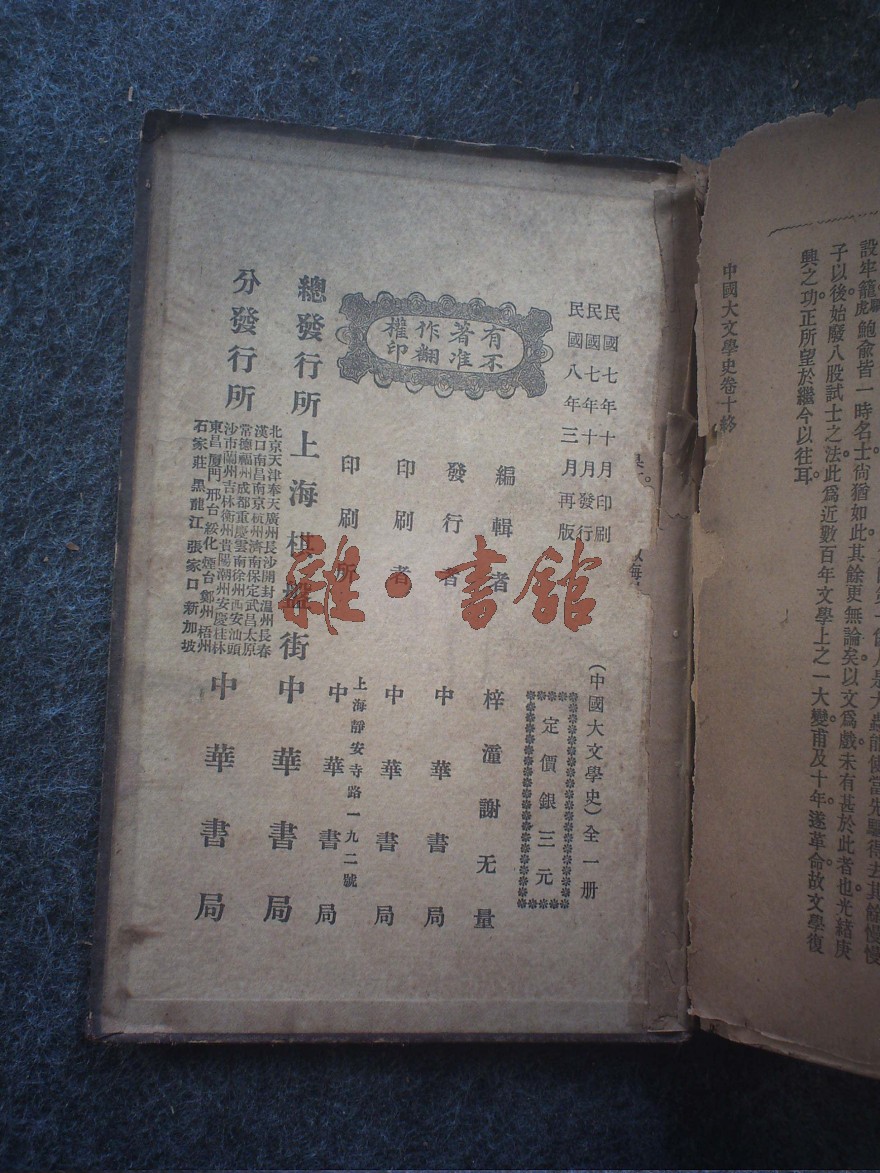 鮑俞皆一時名士尙猶如此其餘更無論矣以文爲戲未有甚於此者也光緒庚
子以後始廢八股試士之法此爲近數百年文學上之一大變甫及十年遂革命故文學復
興之功正所望於繼今以往耳。
中國大文學史卷十終
民國七年十月印刷
民國七年十月發行
民國八年三月再版
(中國大文學史)全一册
定價銀三元
有著作權
不准翻印
編輯者 梓潼謝无量
發行者 中華書局
印刷者 中華書局
印刷所 上海靜安寺路一九二號
中華書局
總發行所 上海棋盤街 中華書局
分發行所
北京天津奉天廣州長沙開封温州長春
漢口南昌南京杭州濟南保定武昌太原
常德福州成都重慶雲南徐州西安汕頭
沙市蘭州吉林衢州貴陽潮州安慶桂林
東昌廈門邢台綏化煙台鄭州梧州
石家莊黑龍江張家口新加坡
中華書局
雜·書館